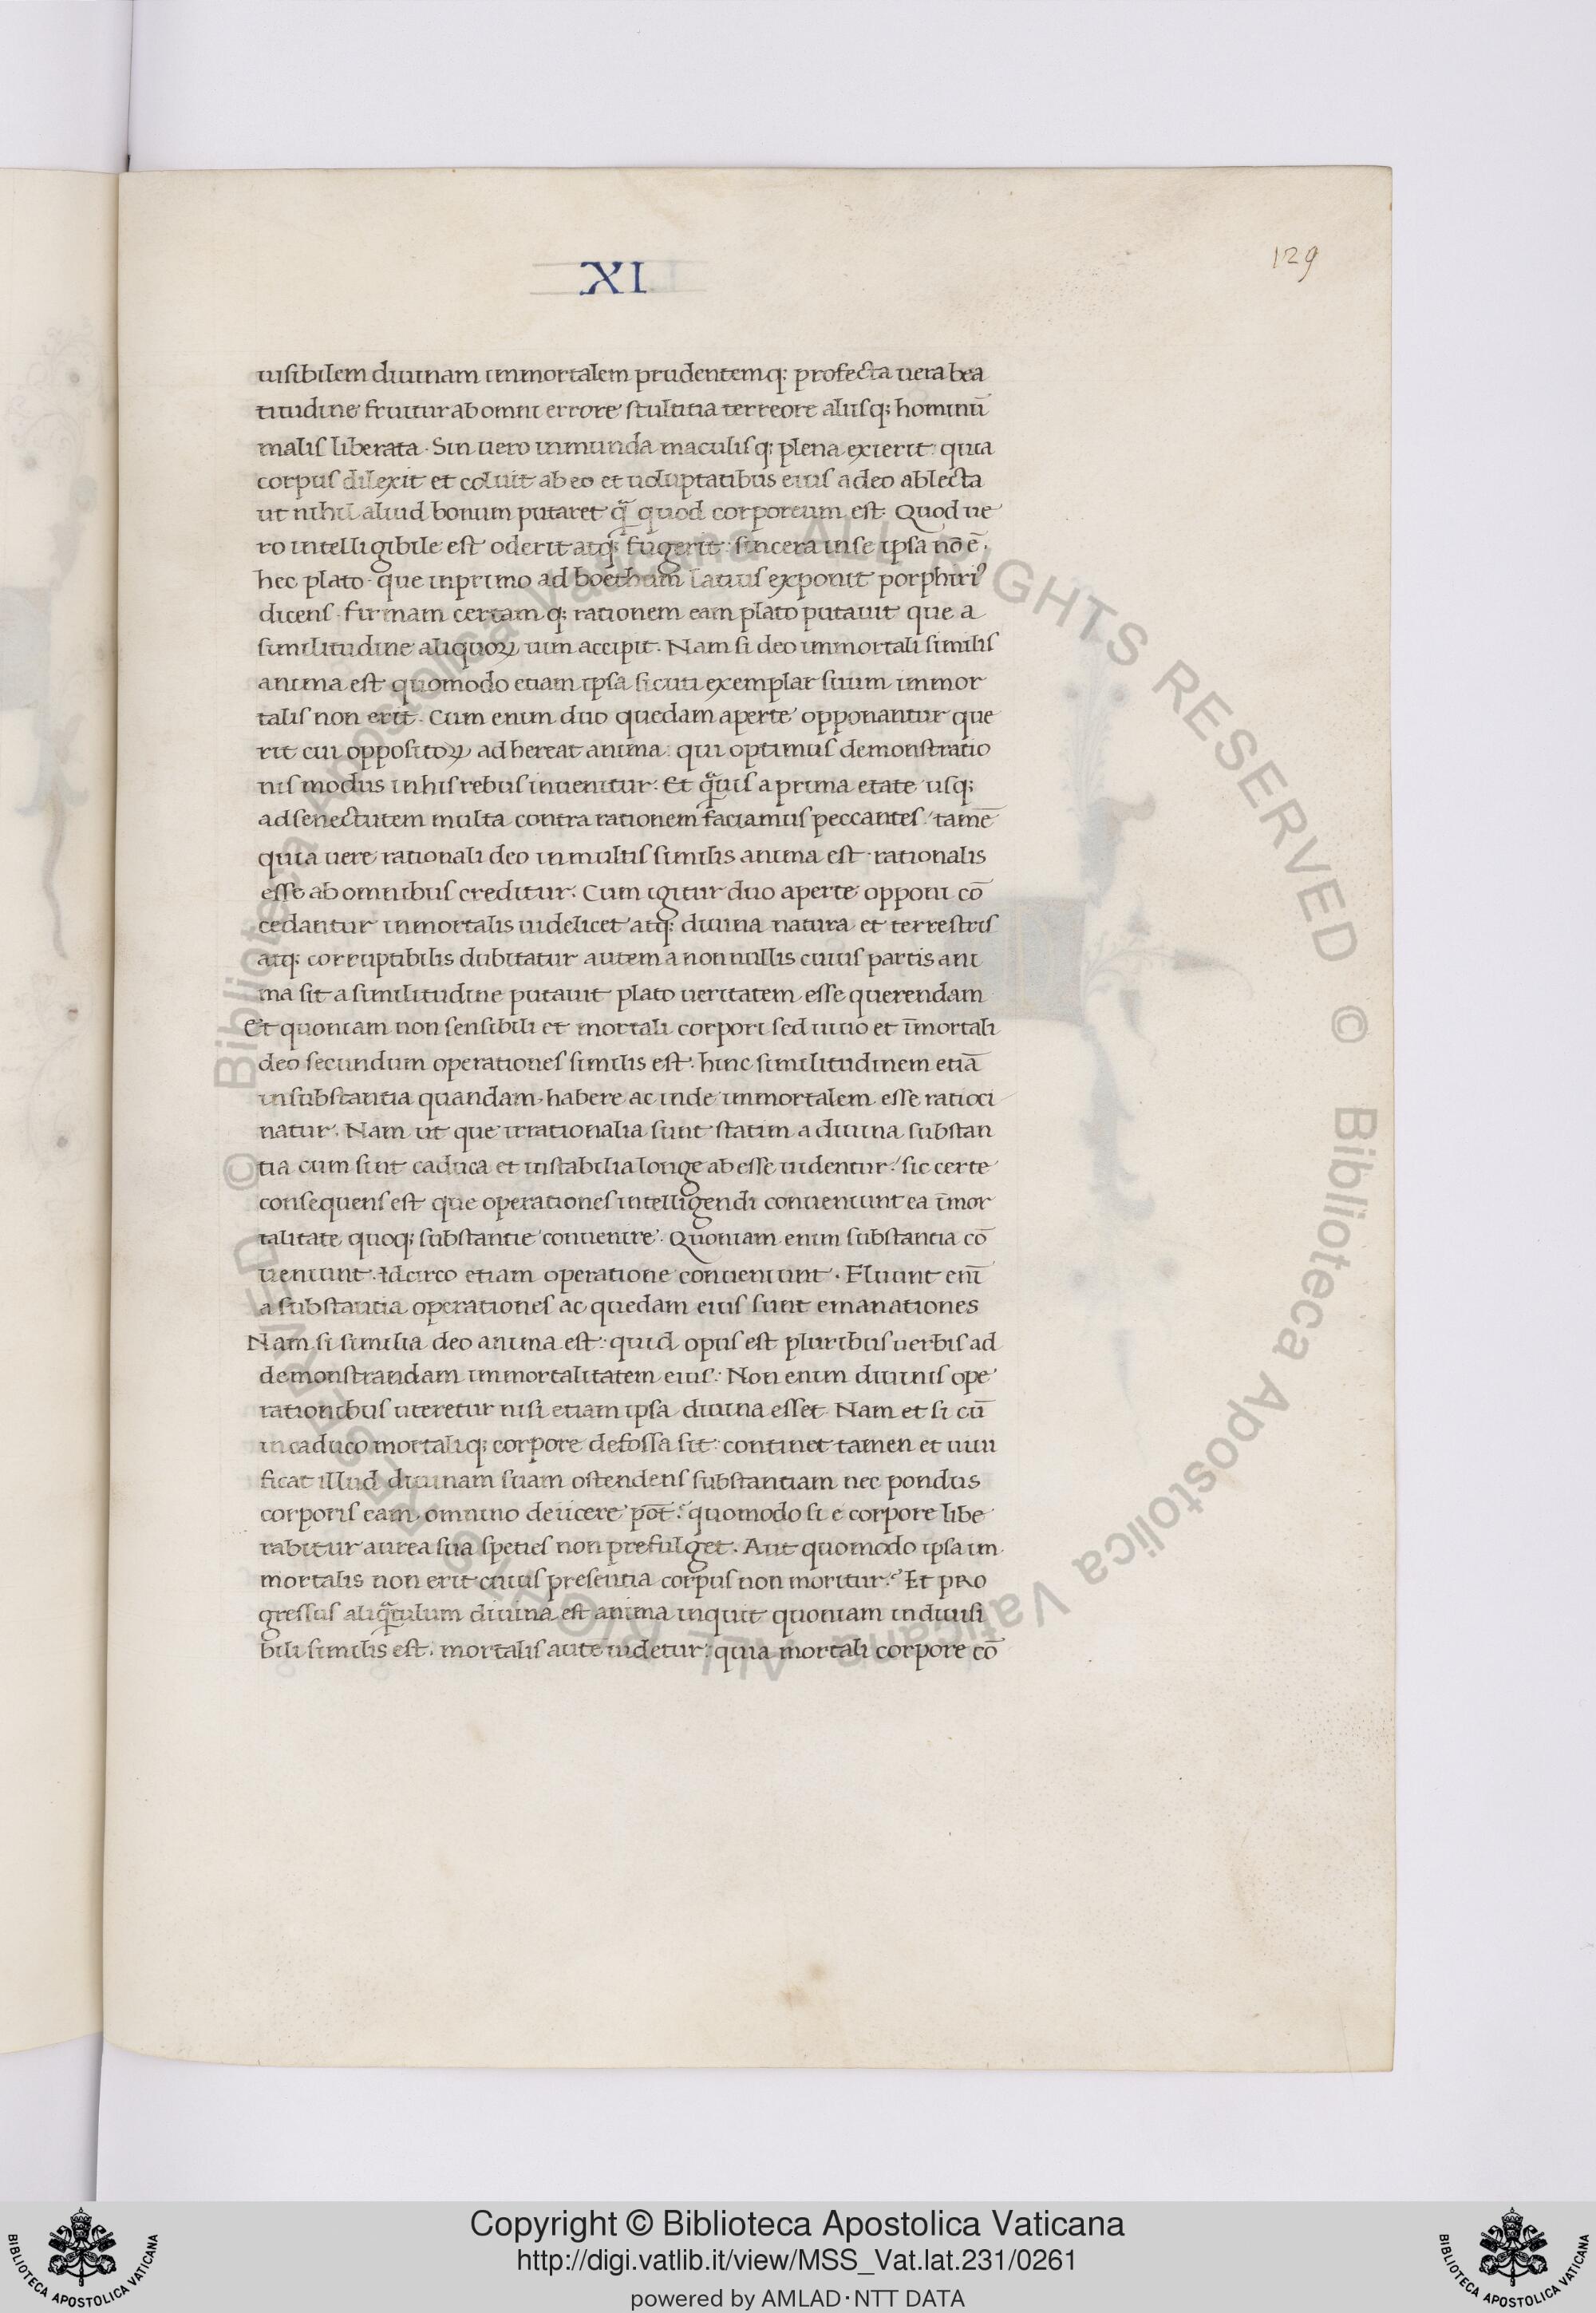 XI
129
uisibilem diuinam immortalem prudentemq; profecta uera bea
titudine fruitur ab omni errore stultitia terreore aliisq; hominū
malis liberata. Sin uero inmunda maculisq; plena exierit: quia
corpus dilexit et coluit ab eo et uoluptatibus eius adeo ablecta
ut nihil aliud bonum putaret q̄ quod corporeum est. Quod ue
ro intelligibile est oderit atq; fugerit: sincera in se ipsa nō ē.
hec plato. que in primo ad boethum latius exponit porphiriꝰ
dicens. firmam certamq; rationem eam plato putauit que a
similitudine aliquoꝝ uim accipit. Nam si deo immortali similis
anima est quomodo etiam ipsa sicuti exemplar suum immor
talis non erit. Cum enim duo quedam aperte opponantur que
rit cui oppositoꝝ adhereat anima: qui optimus demonstratio
nis modus in his rebus inuenitur. Et q̄uis a prima etate usq;
ad senectutem multa contra rationem faciamus peccantes: tamē
quia uere rationali deo in multis similis anima est. rationalis
esse ab omnibus creditur. Cum igitur duo aperte opponi cō
cedantur inmortalis uidelicet atq; diuina natura et terrestris
atq; corruptibilis dubitatur autem a non nullis cuius partis ani
ma sit a similitudine putauit plato ueritatem esse querendam
Et quoniam non sensibili et mortali corpori sed uiuo et īmortali
deo secundum operationes similis est. hinc similitudinem etiā
in substantia quandam habere ac inde immortalem esse ratioci
natur. Nam ut que irrationalia sunt statim a diuina substan
tia cum sint caduca et instabilia longe abesse uidentur: sic certe
consequens est que operationes intelligendi conueniunt ea īmor
talitate quoq; substantie conuenire. Quoniam enim substantia cō
ueniunt. Idcirco etiam operatione conueniunt. Fluunt enī
a substantia operationes ac quedam eius sunt emanationes
Nam si similia deo anima est: quid opus est pluribus uerbis ad
demonstrandam immortalitatem eius. Non enim diuinis ope
rationibus uteretur nisi etiam ipsa diuina esset. Nam et si cū
in caduco mortaliq; corpore defossa sit: continet tamen et uiui
ficat illud diuinam suam ostendens substantiam nec pondus
corporis eam omnino deiicere pōt: quomodo si e corpore libe
rabitur aurea sua speties non prefulget. Aut quomodo ipsa im
mortalis non erit cuius presentia corpus non moritur. Et pro
gressus aliq̄tulum diuina est anima inquit quoniam indiuisi
bili similis est. mortalis aute uidetur: quia mortali corpore cō
© Biblioteca Apostolica Vaticana ALL RIGHTS RESERVED
© Biblioteca Apostolica Vaticana ALL RIGHTS RESERVED
Copyright © Biblioteca Apostolica Vaticana
http://digi.vatlib.it/view/MSS_Vat.lat.231/0261
powered by AMLAD·NTT DATA
BIBLIOTECA APOSTOLICA VATICANA
BIBLIOTECA APOSTOLICA VATICANA